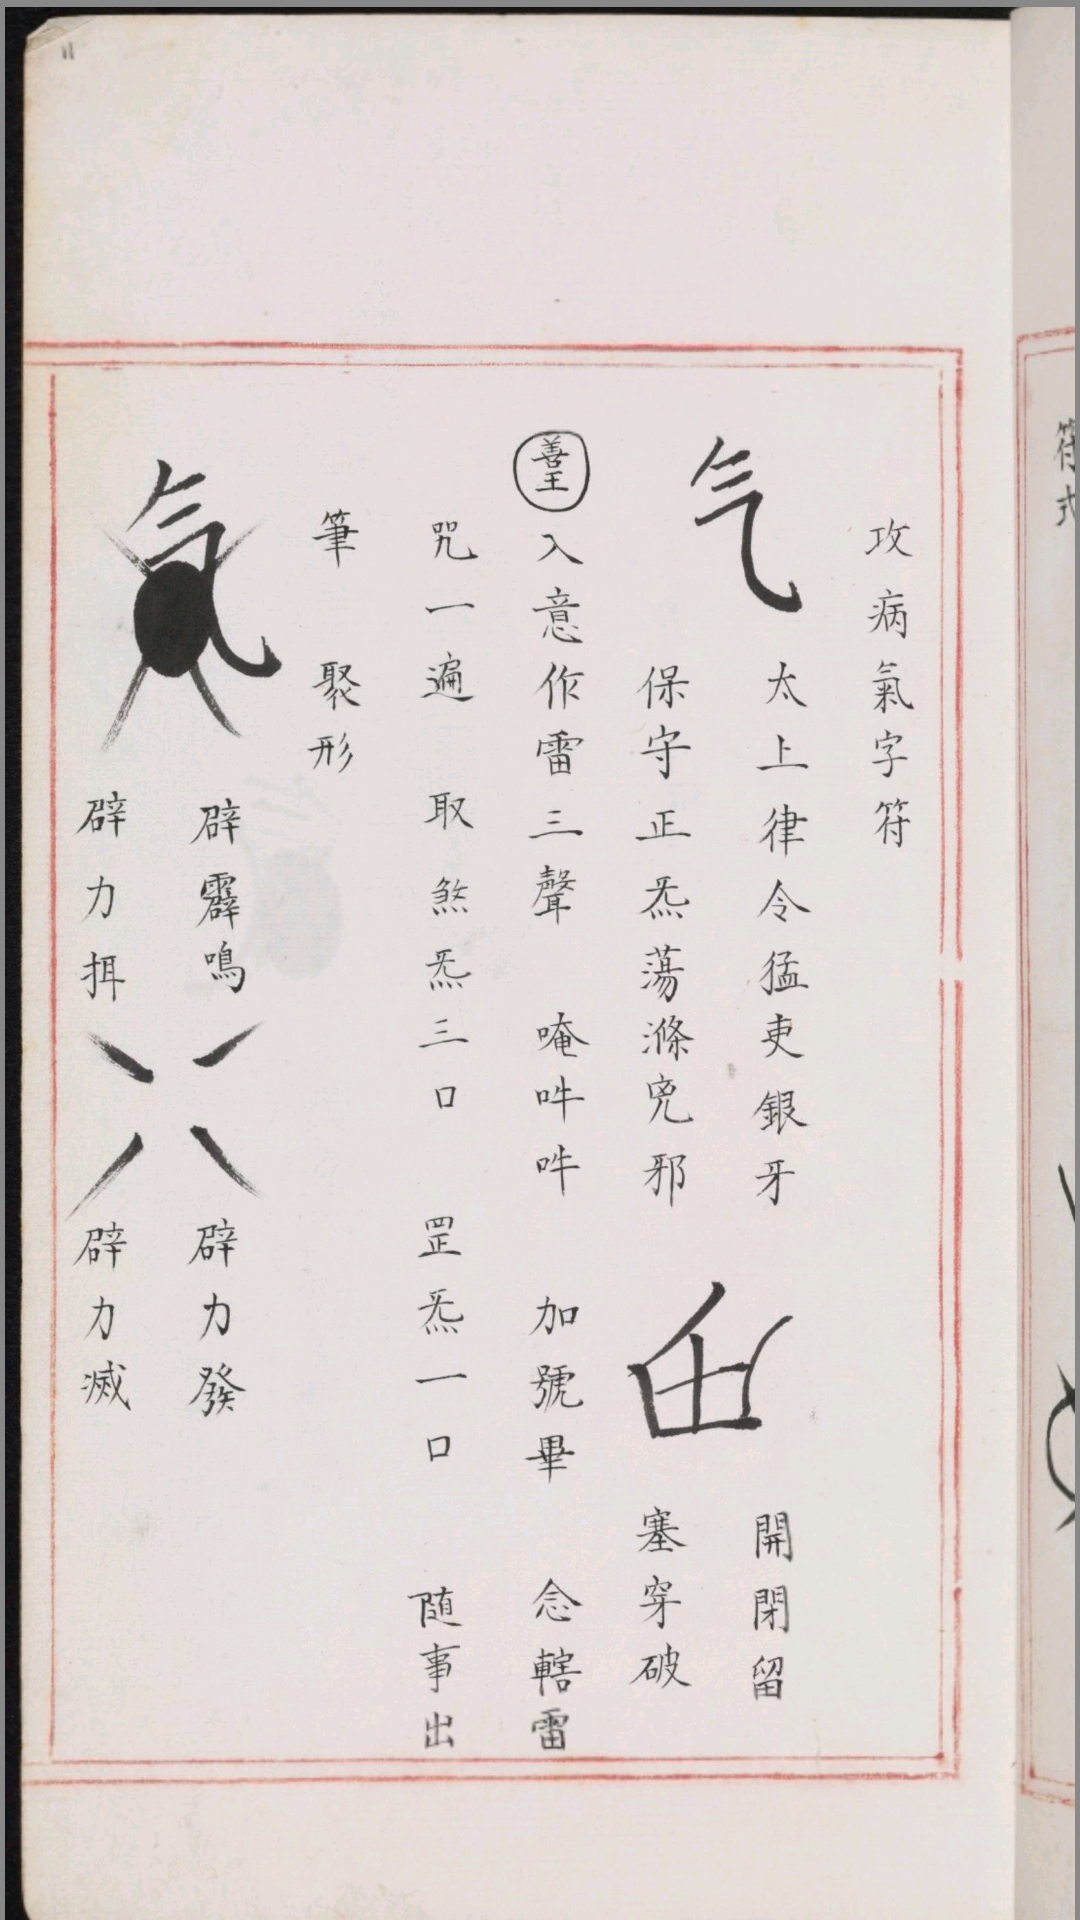 攻病氣字符
气
太上律令猛吏銀牙
保守正炁蕩滌兇邪
開閉留
塞穿破
善王
入意作雷三聲 唵吽吽 加號畢 念轄雷
咒一遍 取煞炁三口 罡炁一口 随事出
筆 聚形
气
辟霹鳴 辟力發
辟力揖 辟力滅
符式